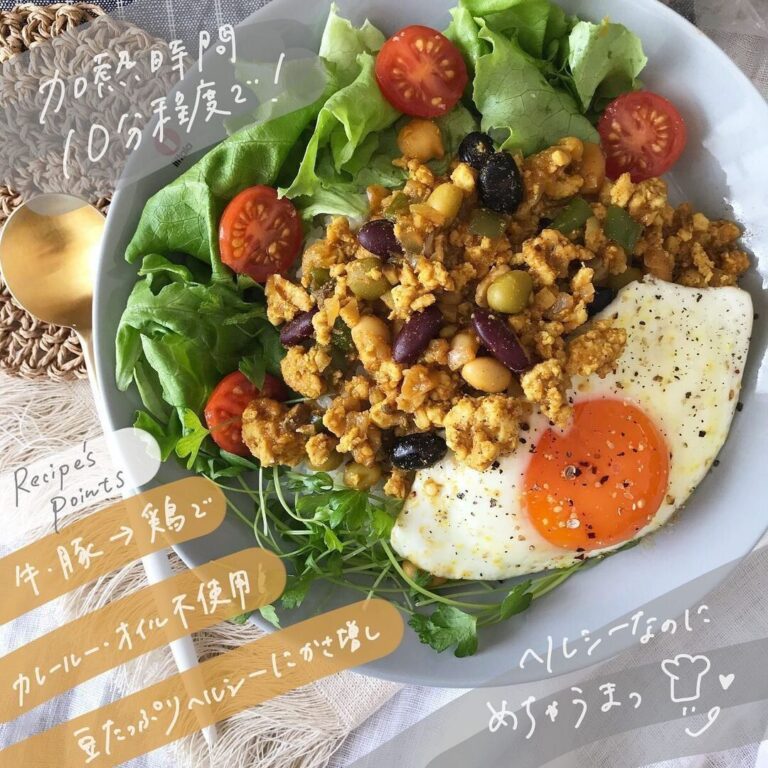 加熱時間
10分程度で!
Recipe's
points
牛・豚→鶏で
カレールー・オイル不使用
豆たっぷりヘルシーにかさ増し
ヘルシーなのに
めちゃうまっ